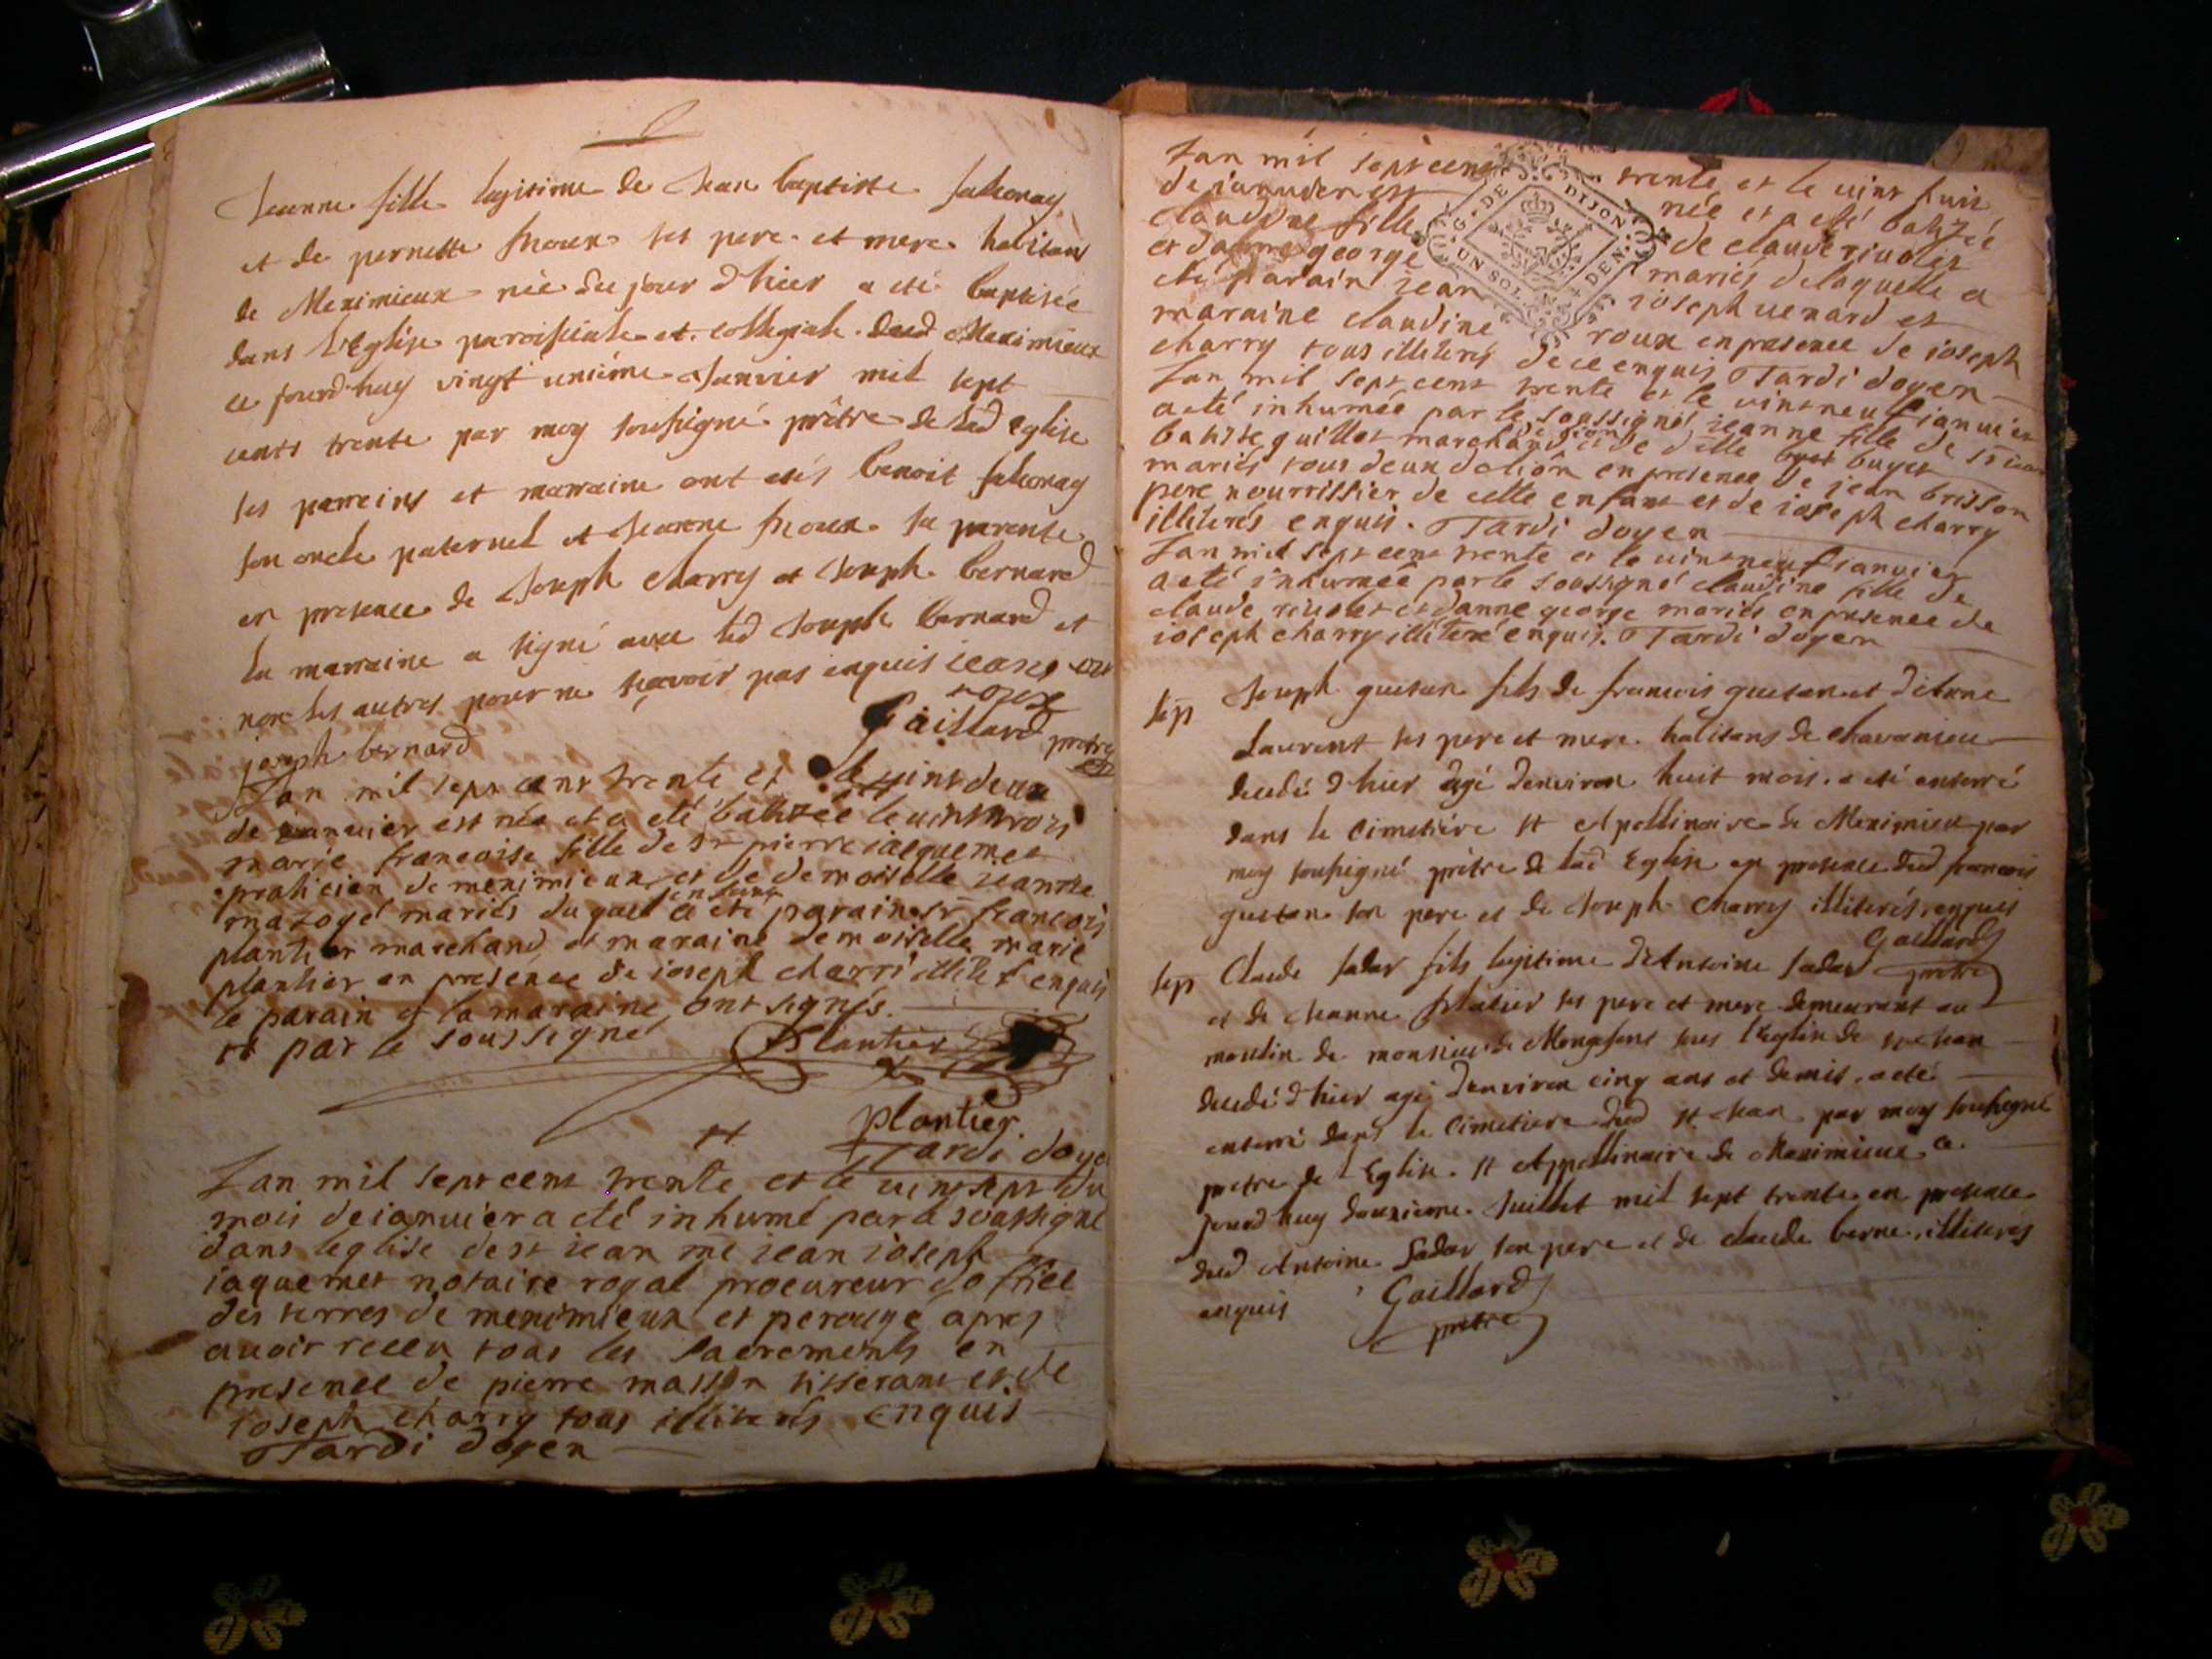 Jeanne fille legitime de Jean baptiste falconay
et de pernette froux ses pere et mere habitans
de Meximieux née du jour d'hier a eté baptisée
dans l'Eglise paroissiale et collegiale dud Meximieux
ce jourd'huy vingt unieme Janvier mil sept
cents trente par moy soussigné prêtre de lad eglise
ses parreins et marraine ont etés benoit falconay
son oncle paternel et Jeanne froux sa parente
en presence de Joseph charry et Joseph bernard
la marraine a signé avec led Joseph bernard et
non les autres pour ne sçavoir pas enquis jeane
roux
joseph bernard
Gaillard prêtre
Lan mil sept cent trente et le vint deux
de ianuier est née et a eté batizée le vint trois
marie francoise fille de sr pierre iaquemet
praticien de meximieux et de demoiselle ieanne
mazoyé mariés du quel enfant a eté parain sr francois
plantier marchand et maraine demoiselle marie
plantier en presence de ioseph charri illiteré enquis
le parain et la maraine ont signés.
et par le soussigné
Plantier
plantier
Tardi doyen
Lan mil sept cent trente et le vint sept du
mois de ianuier a eté inhumé par le soussigné
dans leglise de st iean me iean ioseph
iaquemet notaire royal procureur doffice
des terres de meximieux et perouge apres
auoir receu tous les sacrements en
presence de pierre masson tisserant et de
ioseph charry tous illiterés enquis
Tardi doyen
Lan mil sept cent trente et le vint huit
de ianuier est née et a eté batizée
claudine fille de claude riuolet
et danne george mariés de laquelle a
eté parain iean ioseph uenard et
maraine claudine roux en presence de ioseph
charry tous illiterés de ce enquis Tardi doyen
G. DE DIJON
UN SOL. DEN.
Lan mil sept cent trente et le vint neuf ianuier
a eté inhumée par le soussigné ieanne fille de sr iean
batiste guillot marchand et de delle buget
mariés tous deux de lion en presence de jean brisson
pere nourrissier de cette enfant et de ioseph charry
illiterés enquis. Tardi doyen
Lan mil sept cent trente et le vint neuf ianvier
a eté inhumée par le soussigné claudine fille de
claude riuolet et danne george mariés en presence de
ioseph charry illiteré enquis. Tardi doyen
sep Joseph guetan fils de francois guetan et d'Anne
Laurent ses pere et mere habitans de chavanieu
decedé d'hier agé d'environ huit mois. a eté enterré
dans le Cimetiére St Apollinaire de Meximieux par
moy soussigné prêtre de lad Eglise en presence dud francois
guetan son pere et de Joseph Charry illiterés, enquis
Gaillard
prêtre
sep Claude sadar fils legitime d'Antoine sadar
et de Jeanne platier ses pere et mere demeurant au
moulin de monsieur de Mongefond sous l'Eglise de St Jean
decedé d'hier agé d'environ cinq ans et demis, a eté
enterré dans le Cimetiere dud St Jean par moy soussigné
pretre de l'Eglise St Appollinaire de Meximieux, ce
jourd'huy douzieme Juillet mil sept trente en presence
dud Antoine sadar son pere et de claude berne, illiterés
enquis
Gaillard
prêtre